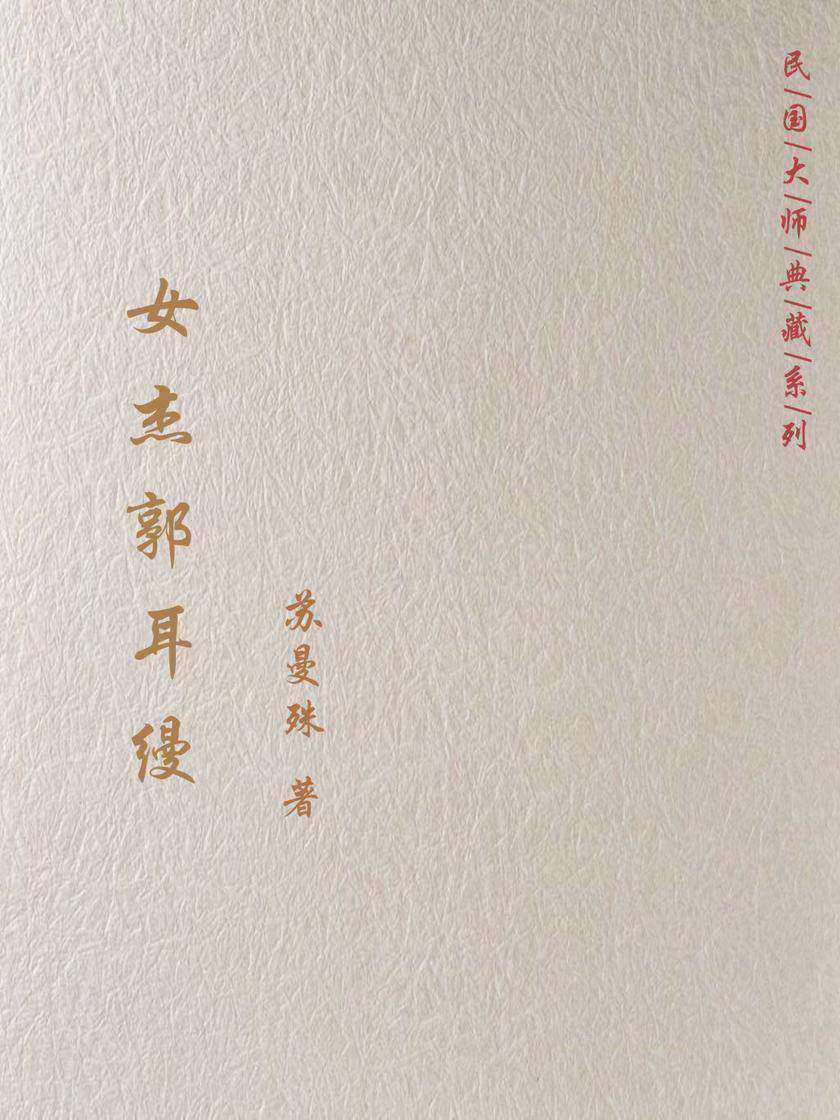 民/国/大/师/典/藏/系/列
女杰郭耳缦
苏曼殊 著